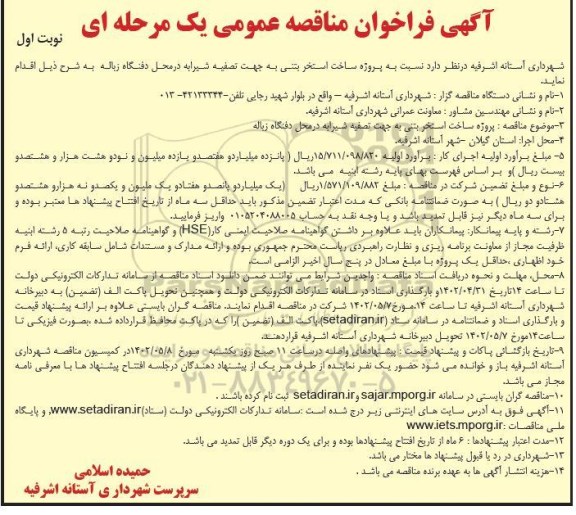 آگهی فراخوان مناقصه عمومی یک مرحله ای
نوبت اول
شهرداری آستانه اشرفیه درنظر دارد نسبت به پروژه ساخت استخر بتنی به جهت تصفیه شیرابه درمحل دفنگاه زباله به شرح ذیل اقدام
نماید.
۱-نام و نشانی دستگاه مناقصه گزار : شهرداری آستانه اشرفیه – واقع در بلوار شهید رجایی تلفن-۴۲۱۳۳۳۴۴- ۰۱۳
۲-نام و نشانی مهندسین مشاور : معاونت عمرانی شهرداری آستانه اشرفیه.
۳-موضوع مناقصه : پروژه ساخت استخر بتنی به جهت تصفیه شیرابه درمحل دفنگاه زباله
۴-محل اجرا: استان گیلان -شهر آستانه اشرفیه.
۵- مبلغ برآورد اولیه اجرای کار : برآورد اولیه ۱۵/۷۱۱/۰۹۸/۸۲۰ریال ( پانزده میلیاردو هفتصدو یازده میلیون و نودو هشت هزار و هشتصدو
بیست ریال )و بر اساس فهرست بهای پایه رشته ابنیه می باشد.
۶-نوع و مبلغ تضمین شرکت در مناقصه : مبلغ ۱/۵۷۱/۱۰۹/۸۸۲ریال (یک میلیاردو پانصدو هفتادو یک ملیون و یکصدو نه هزارو هشتصدو
هشتادو دو ریال ) به صورت ضمانتنامه بانکی که مدت اعتبار تضمین مذکور باید حداقل سه ماه از تاریخ افتتاح پیشنهاد ها معتبر بوده و
برای سه ماه دیگر نیز قابل تمدید باشد و یا وجه نقد به حساب ۰۱۰۵۲۰۴۰۸۸۰۰۵ واریز فرمایید.
۷-رشته و پایه پیمانکار: پیمانکاران باید علاوه بر داشتن گواهینامه صلاحیت ایمنی کار(HSE) و گواهینامه صلاحیت رتبه ۵ رشته ابنیه
ظرفیت مجاز از معاونت برنامه ریزی و نظارت راهبردی ریاست محترم جمهوری بوده و ارائه مدارک و مستندات شامل سابقه کاری، ارائه فرم
خود اظهاری ،حداقل یک پروژه با مبلغ معادل در پنج سال اخیر الزامی است.
۸-محل، مهلت و نحوه دریافت اسناد مناقصه : واجدین شرایط می توانند ضمن دانلود اسناد مناقصه از سامانه تدارکات الکترونیکی دولت
تا ساعت ۱۴تاریخ ۱۴۰۲/۰۴/۳۱ و بارگذاری اسناد در سامانه تدارکات الکترونیکی دولت و همچنین تحویل پاکت الف (تضمین) به دبیرخانه
شهرداری آستانه اشرفیه تا ساعت ۱۴مورخ۱۴۰۲/۰۵/۷ شرکت در مناقصه اقدام نمایند. مناقصه گران بایستی علاوه بر ارائه پیشنهاد قیمت
و بارگذاری اسناد و ضمانتنامه در سامانه ستاد (setadiran.ir)،پاکت الف (تضمین )را که در پاکت محافظ قرارداده شده ،بصورت فیزیکی تا
ساعت۱۴مورخ ۱۴۰۲/۰۵/۷ تحویل دبیرخانه شهرداری آستانه اشرفیه قراردهند.
۹-تاریخ بازگشائی پاکات و پیشنهاد قیمت : پیشنهادهای واصله درساعت ۱۱ صبح روز یکشنبه مورخ ۱۴۰۲/۰۵/۸درکمیسیون مناقصه شهرداری
آستانه اشرفیه باز و خوانده می شود حضور یک نفر نماینده از طرف هر یک از پیشنهاد دهندگان درجلسه افتتاح پیشنهاد ها با معرفی نامه
مجاز می باشد.
۱۰-مناقصه گران بایستی در سامانه sajar.mporg.ir و setadiran.ir ثبت نام کرده باشند .
۱۱-آگهی فوق به آدرس سایت های اینترنتی زیر درج شده است :سامانه تدارکات الکترونیکی دولت (ستاد)www.setadiran.ir, و پایگاه
ملی مناقصات :www.iets.mporg.ir
۱۲-مدت اعتبار پیشنهادها : ۶ ماه از تاریخ افتتاح پیشنهادها بوده و برای یک دوره دیگر قابل تمدید می باشد.
۱۳-شهرداری در رد یا قبول پیشنهاد ها مختار می باشد.
۱۴-هزینه انتشار آگهی ها به عهده برنده مناقصه می باشد .
حمیده اسلامی
سرپرست شهرداری آستانه اشرفیه
۰۲۱-۸۸۳۴۹۶۷۰-۵